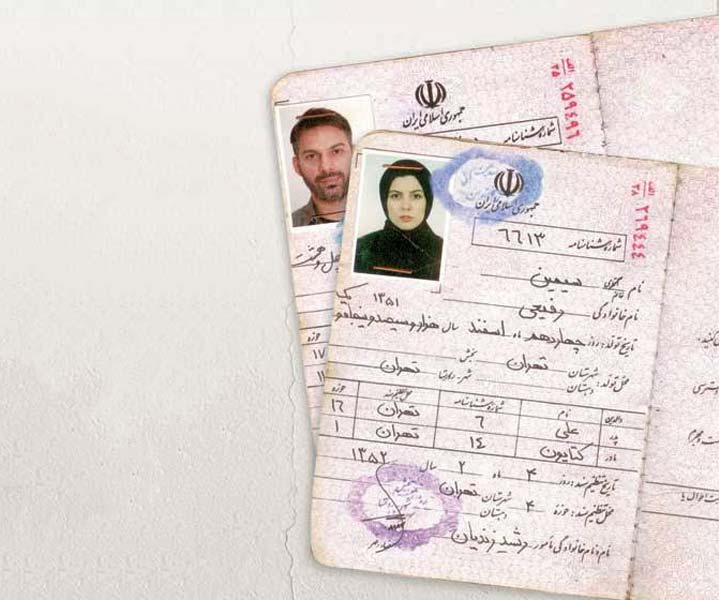 الف
۲۵
۲۵۹۴۹۶
جمهوری اسلامی ایران
شماره شناسنامه
الف
۲۸
۲۶۹۴۴۴
جمهوری اسلامی ایران
شماره شناسنامه ۶۶۱۳
نام سیمین
نام خانوادگی رفیعی
۱۳۵۱
تاریخ تولد: روز چهاردهم ماه اسفند سال هزار و سیصد و پنجاه و یک
محل تولد: شهرستان تهران بخش تهران
دهستان
والدین نام شماره شناسنامه حوزه
پدر علی ۶ تهران ۱۶
مادر کتایون ۱۴ تهران ۱
تاریخ تنظیم سند: روز ۴ ماه ۲ سال ۱۳۵۲
محل تنظیم سند: حوزه ۴ شهرستان تهران
دهستان
نام و نام خانوادگی مأمور رشید زندیان
حوزه
۱۷